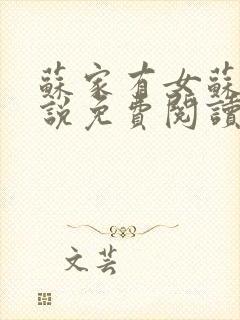 蘇家有女蘇
說免費閱讀
文芸